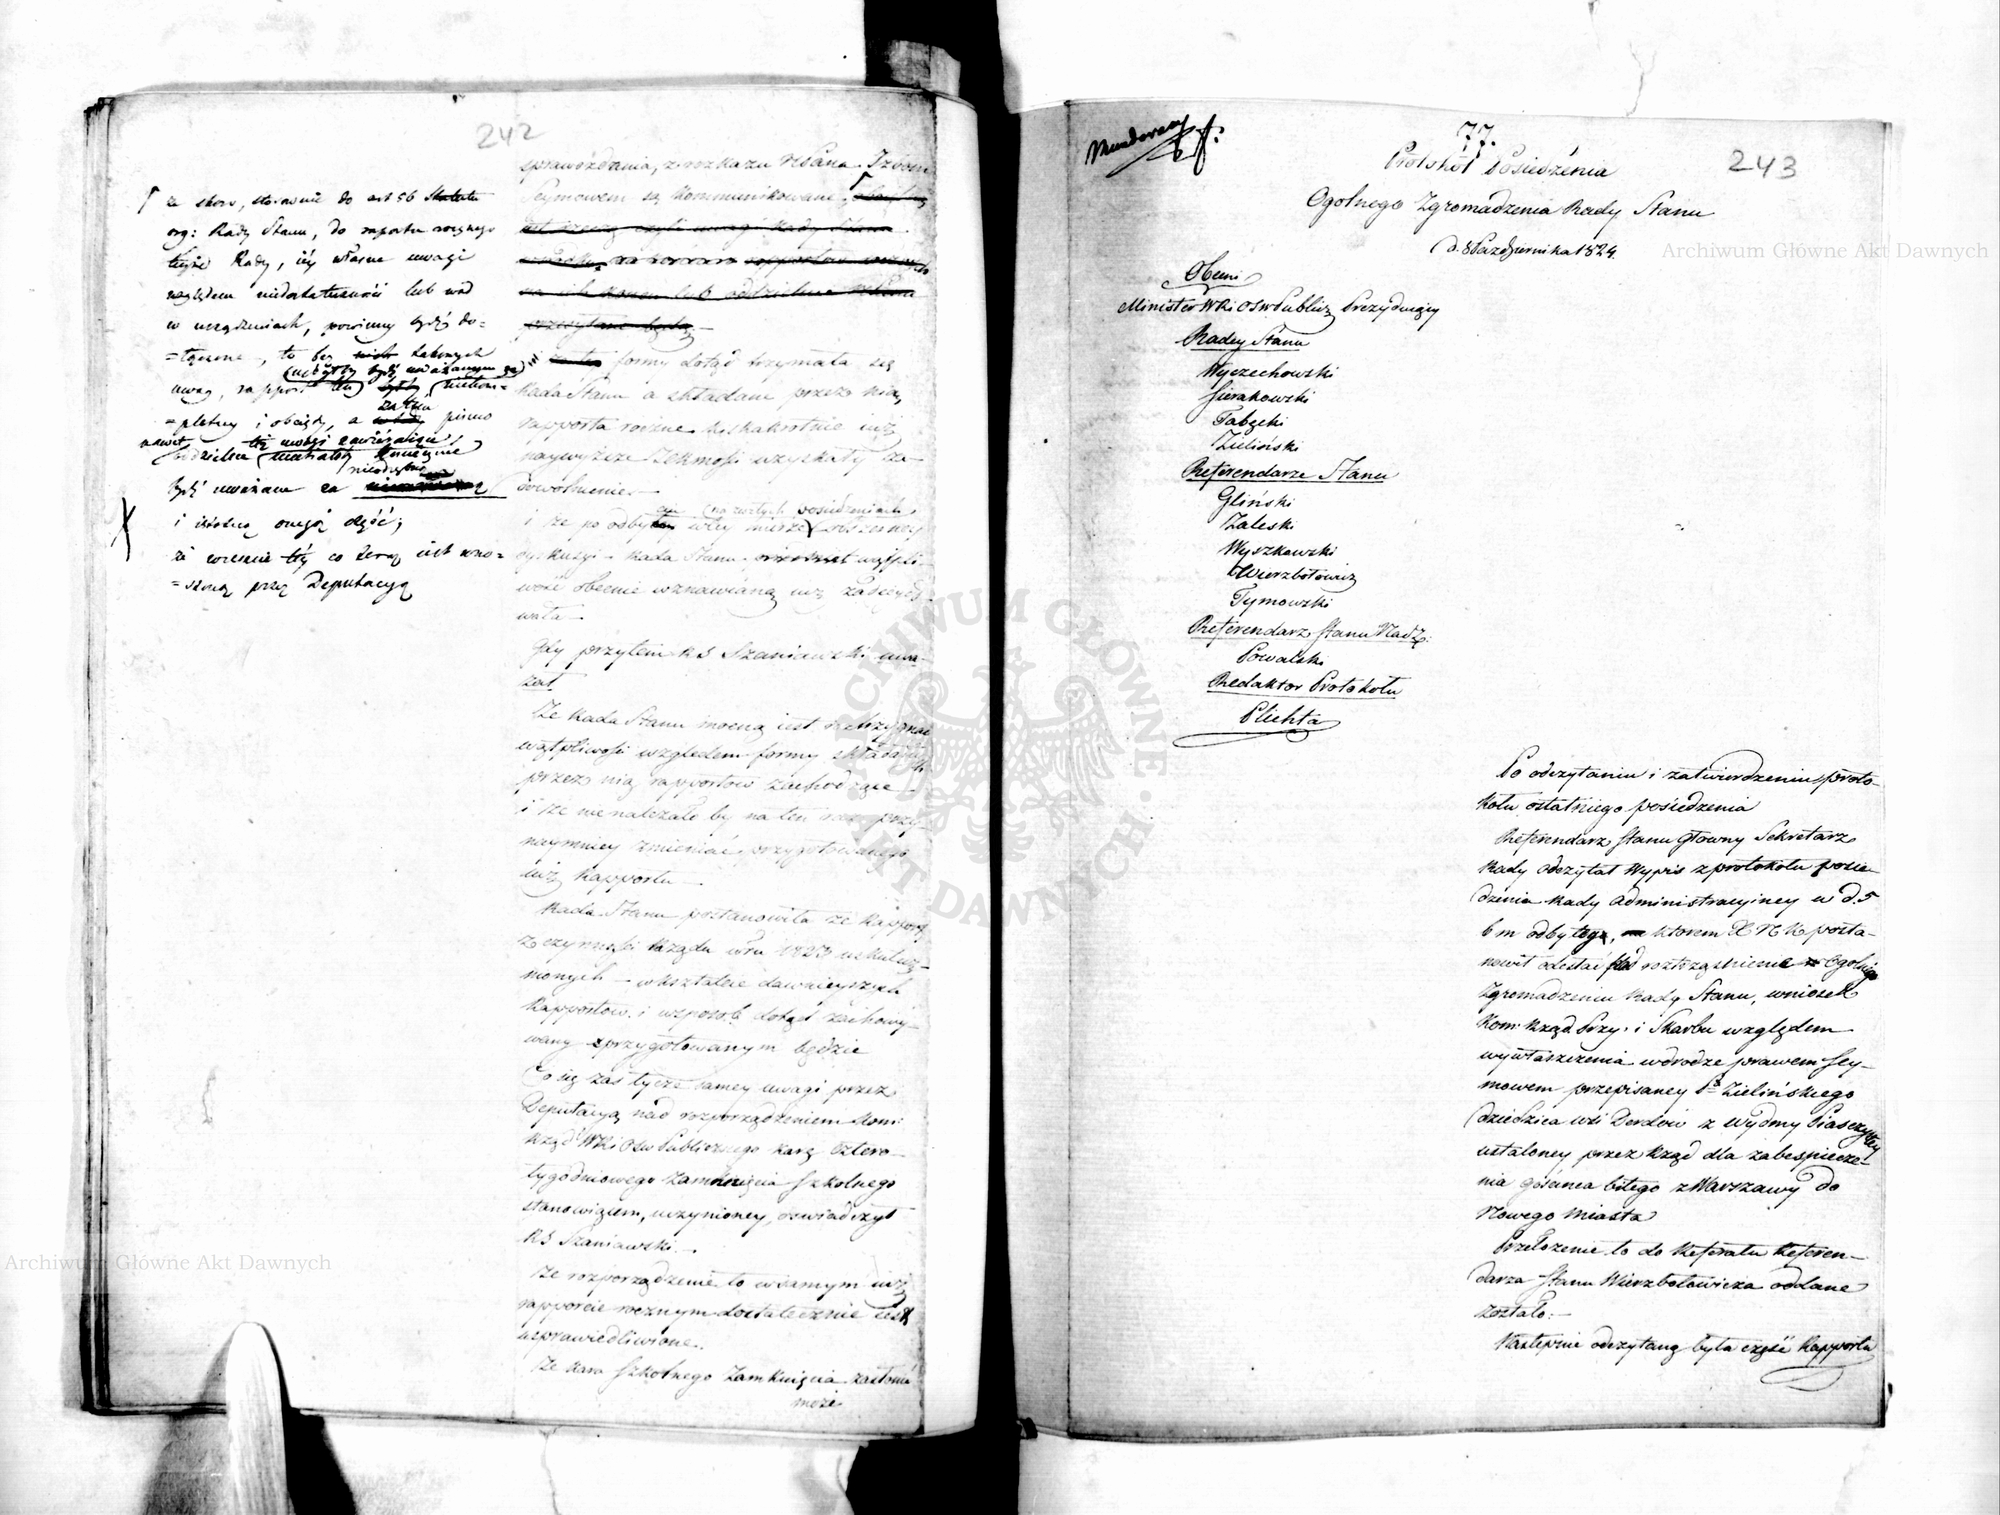 242
że skoro, stosownie do art 56 Statutu
org: Rady Stanu, do raportu rocznego
teyże Rady, iéy własne uwagi
względem niedokładności lub wad
w urządzeniach, powinny bydź do=
=łączone, to bez takowych
uwag, rapport ten mógłby bydź uważanym za niekom=
=pletny i obcięty, a zatem pismo
nawet oddzielne też uwagi zawieraiące musiałoby koniecznie
bydź uważane za nieodzowną
i istotną onegoż część;
że wreszcie też co teraz iest wno=
=szoną przez Deputacyą
sprawozdania, z rozkazu NPana Izbom
Seymowem są kommunikowane
formy dotąd trzymała się
Rada Stanu a składane przez nią
rapporta roczne kilkakrotnie iuż
naywyższe JCKMości uzyskały za-
dowolnienie
i że po odbytey w tey mierze na zeszłych posiedzeniach obszerney
dyskussyi Rada Stanu wątpli-
wość obecnie wznawianą iuż zadecydo-
wała
Gdy przytem RS Szaniawski uwa-
żał
Że Rada Stanu mocną iest rozstrzygnąć
wątpliwości względem formy składanych
przez nią rapportow zachodzące
i że nie należało by na ten raz przy-
naymniey zmieniać przygotowanego
iuż Rapportu
Rada Stanu postanowiła że Rapport
z czynności Rządu w ru 1823 uskutecz-
nionych w kształcie dawnieyszych
Rapportow i w sposób dotąd zachowy-
wany przygotowanym będzie
Co się zaś tycze samey uwagi przez
Deputacyą nad rozporządzeniem Kom:
Rząd WR i Osw Publicznego karę cztero-
tygodniowego zamknięcia szkolnego
stanowiącem, uczynioney, oswiadczył
RS Szaniawski
Że rozporządzenie to w samym iuż
rapporcie rocznym dostatecznie iest
usprawiedliwione.
Że kara szkolnego zamknięcia
może
77.
243
Protokół Posiedzenia
Ogolnego Zgromadzenia Rady Stanu
d. 8 Października 1824
Obecni
Minister WR i Osw Publicz Prezyduiący
Radcy Stanu
Wyczechowski
Sierakowski
Tabęcki
Zieliński
Referendarze Stanu
Gliński
Zaleski
Wyszkowski
Wierzbołowicz
Tymowski
Referendarz Stanu Nadz:
Powalski
Redaktor Protokołu
Plichta
Po odczytaniu i zatwierdzeniu proto-
kołu ostatniego posiedzenia
Referendarz Stanu Głowny Sekretarz
Rady odczytał Wypis z protokołu posie-
dzenia Rady Administracyiney w d. 5
b m odbytego, w ktorem X N K posta-
nowił odesłać pod roztrząśnienie Ogolnego
Zgromadzenia Rady Stanu, wniosek
Kom: Rząd: Przy: i Skarbu względem
wywłaszczenia w drodze prawem Sey-
mowem przepisaney P. Zielińskiego
dziedzica wsi Derdow z Wydmy Piasczystey
ustaloney przez Rząd dla zabespiecze-
nia gościnca bitego z Warszawy do
Nowego Miasta
Przełożenie to do Referatu Referen-
darza Stanu Wierzbołowicza oddane
zostało.
Następnie odczytaną była część Rapportu
Archiwum Główne Akt Dawnych
Archiwum Główne Akt Dawnych
ARCHIWUM GŁÓWNE AKT DAWNYCH